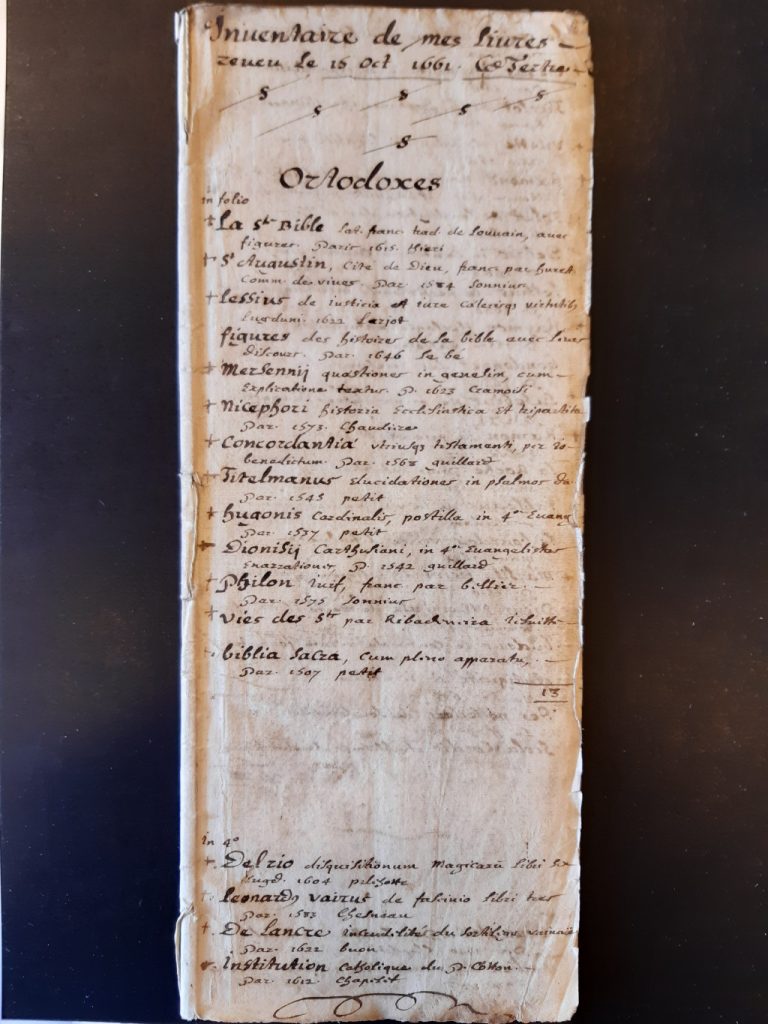 Inuentaire de mes liures
reueu le 16 Oct 1661.
S S S
S S
S
Ortodoxes
in folio
+ La Ste Bible lat. franc. trad. de Louvain, avec
figures. Paris 1615.
+ St Augustin, Cité de Dieu, franc. par
Comm. de viues. Par. 1584 Sonnius
+ Lessius de iusticia et iure virtutib
Lugduni. 1622 Larjot
figures des histoires de la bible avec leurs
discours. Par. 1646 le be
+ Mersennij quæstiones in genesim, cum
Explicatione textus. P. 1623 Cramoisi
+ Nicephori historia Ecclesiastica et tripartita
Par. 1573. Chaudiere
+ Concordantiæ vtriusq testamenti, per Io
benedictum. Par. 1568 guillard
+ Titelmanus Elucidationes in psalmos
Par. 1545 petit
+ hugonis Cardinalis, postilla in 4or Euang
Par. 1537 petit
+ Dionisij Carthusiani, in 4or Euangelistas
Enarrationes P. 1542 guillard
+ Philon iuif, franc par bellier.
Par. 1575 Sonnius
+ vies des Sts par Ribadeneira Iesuitte
biblia Sacra, cum pleno apparatu,
Par. 1507 petit
13
in 4o
+ Delrio disquisitionum Magicarū libri
Lugd. 1604 pilehotte
Leonardq vairus de fascinio libri tres
Par. 1583 Chesneau
+ De Lancre incredulité du sortilege
Par. 1622 buon
+ Institution Catholique du P. Cotton.
Par. 1612 Chapelet